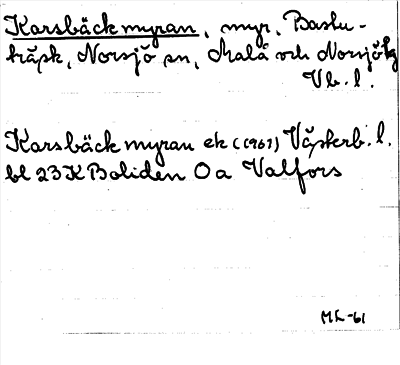 Karsbäckmyran, myr, Bastu-
träsk, Norsjö sn, Malå och Norsjö tg
Vb. l.
Karsbäckmyran ek (1961) Västerb. l.
bl 23 K Boliden O a Valfors
ML-61